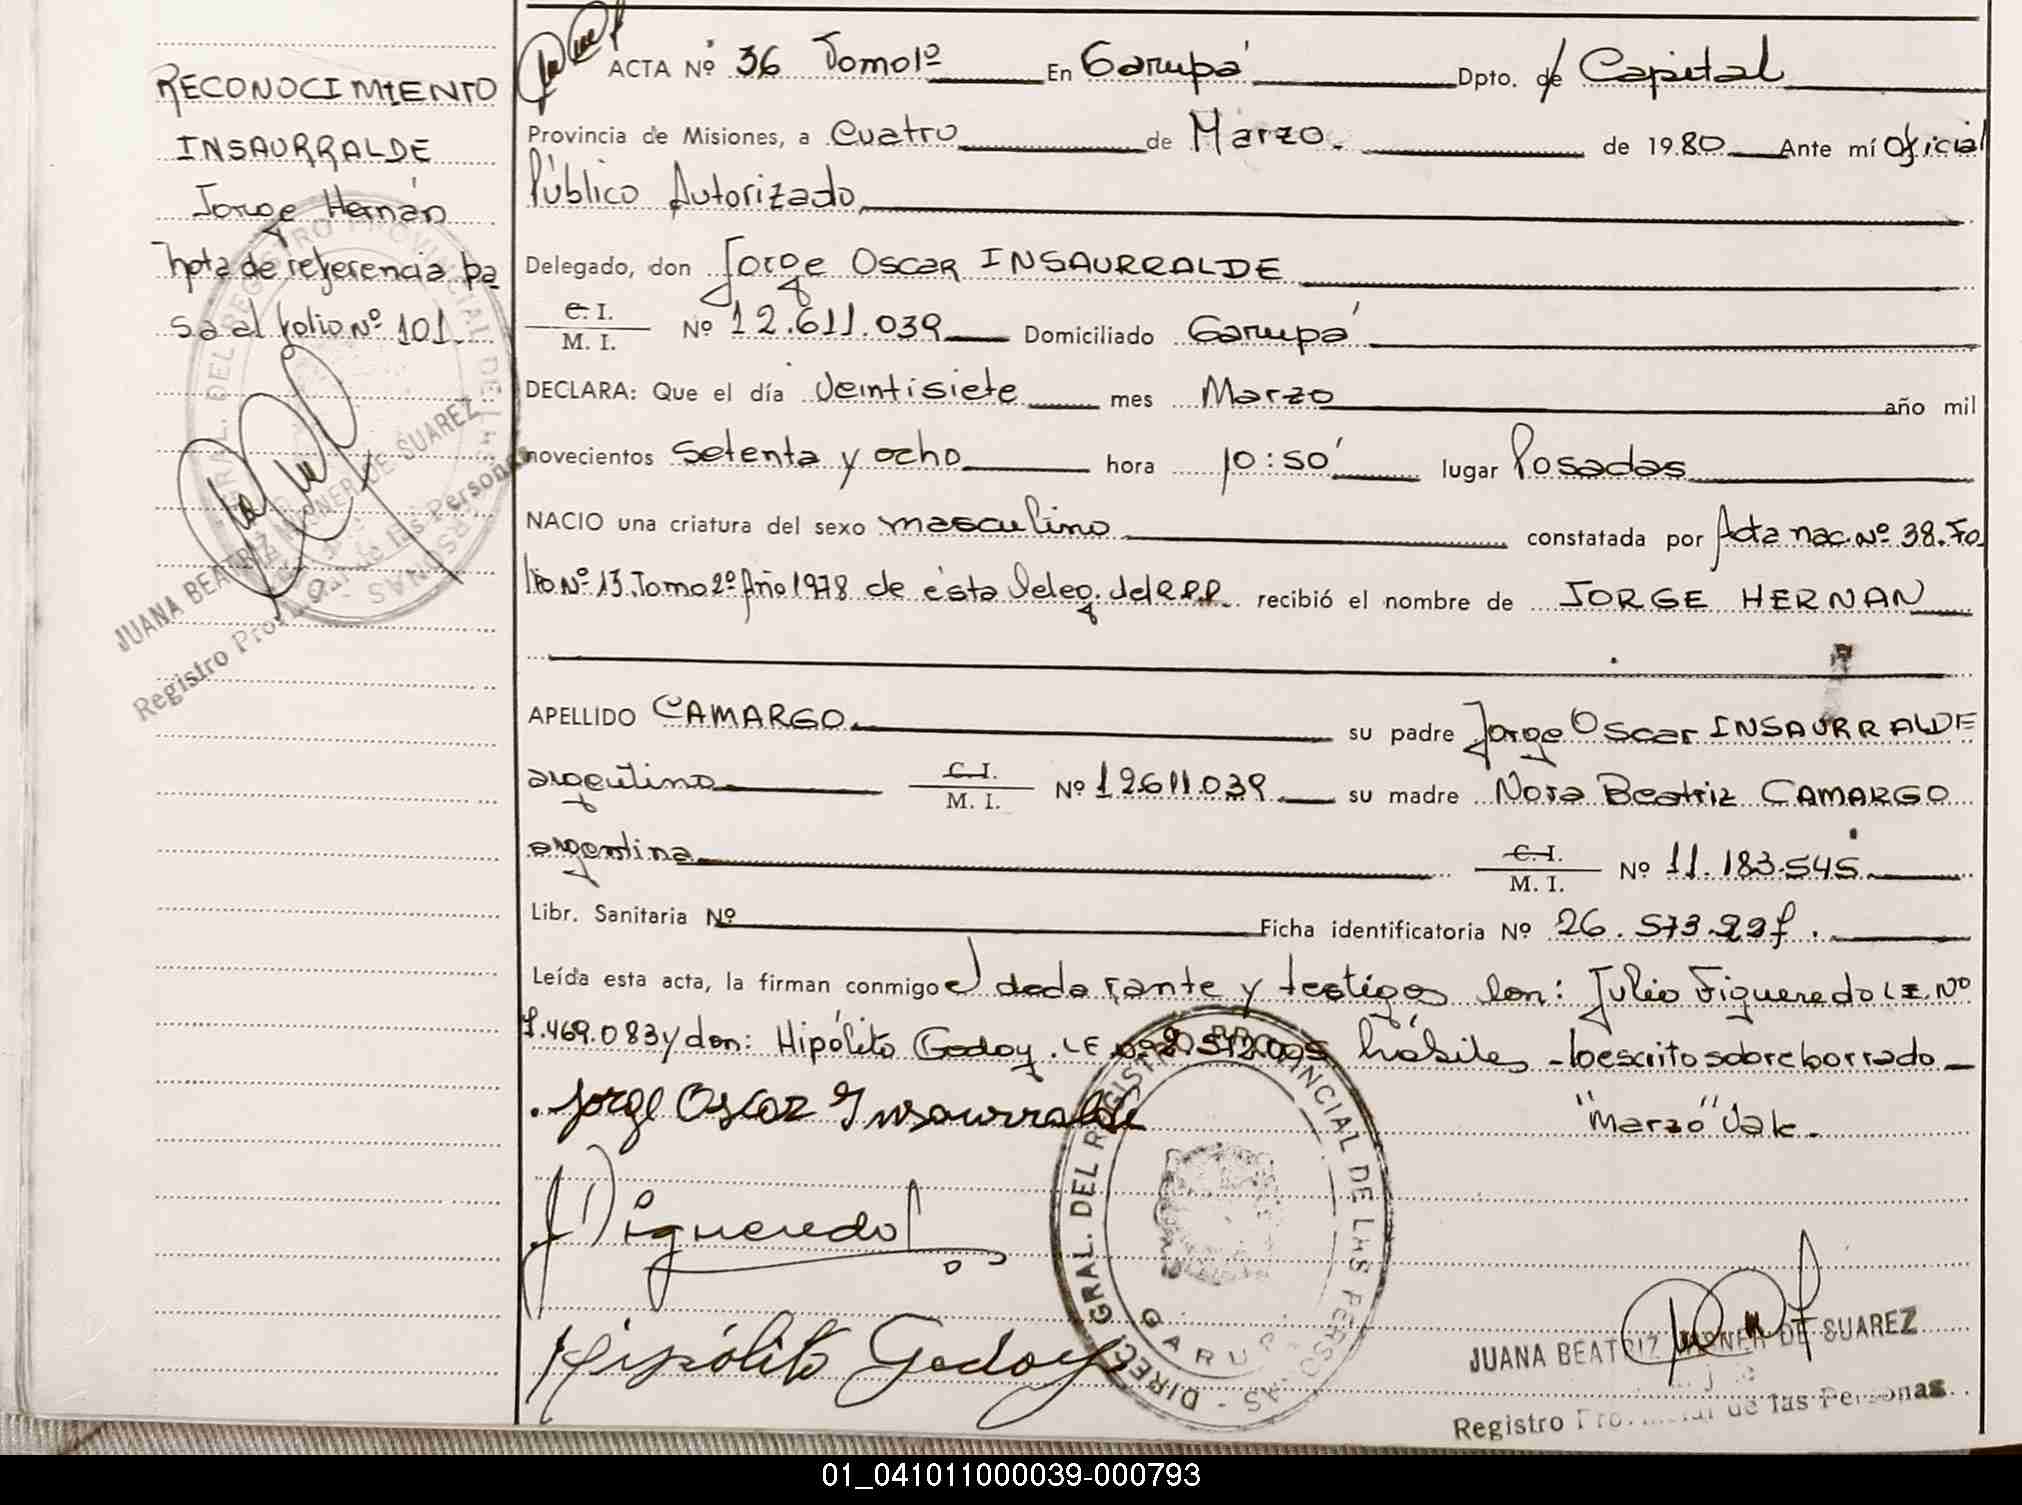 RECONOCIMIENTO
INSAURRALDE
Jorge Hernán
Nota de referencia pa
sa al folio Nº 101.
JUANA BEATRIZ DE SUAREZ
Registro de las Personas
ACTA Nº 36 Tomo 1º En Garupá Dpto. de Capital
Provincia de Misiones, a Cuatro de Marzo. de 1980 Ante mí Oficial
Público Autorizado
Delegado, don Jorge Oscar INSAURRALDE
C. I.
M. I. Nº 12.611.039 Domiciliado Garupá
DECLARA: Que el día Veintisiete mes Marzo año mil
novecientos Setenta y ocho hora 10:50 lugar Posadas
NACIO una criatura del sexo masculino constatada por Acta nac. Nº 38. Fo
lio Nº 13. Tomo 2º Año 1978 de ésta Deleg. del R.P.P. recibió el nombre de JORGE HERNAN
APELLIDO CAMARGO su padre Jorge Oscar INSAURRALDE
argentino C. I.
M. I. Nº 12611.039 su madre Nora Beatriz CAMARGO
argentina C. I.
M. I. Nº 11.183.545
Libr. Sanitaria Nº Ficha identificatoria Nº 26.573.
Leída esta acta, la firman conmigo el declarante y testigos Don: Julio Figueredo L.E. Nº
7.469.083 y don: Hipólito Godoy. L.E. hábiles - lo escrito sobre borrado
"Marzo" Vale.
Jorge Oscar Insaurralde
J Figueredo
Hipólito Godoy
DIREC. GRAL. DEL REGISTRO PROVINCIAL DE LAS PERSONAS
GARUPA
JUANA BEATRIZ DE SUAREZ
Registro Provincial de las Personas
01_041011000039-000793